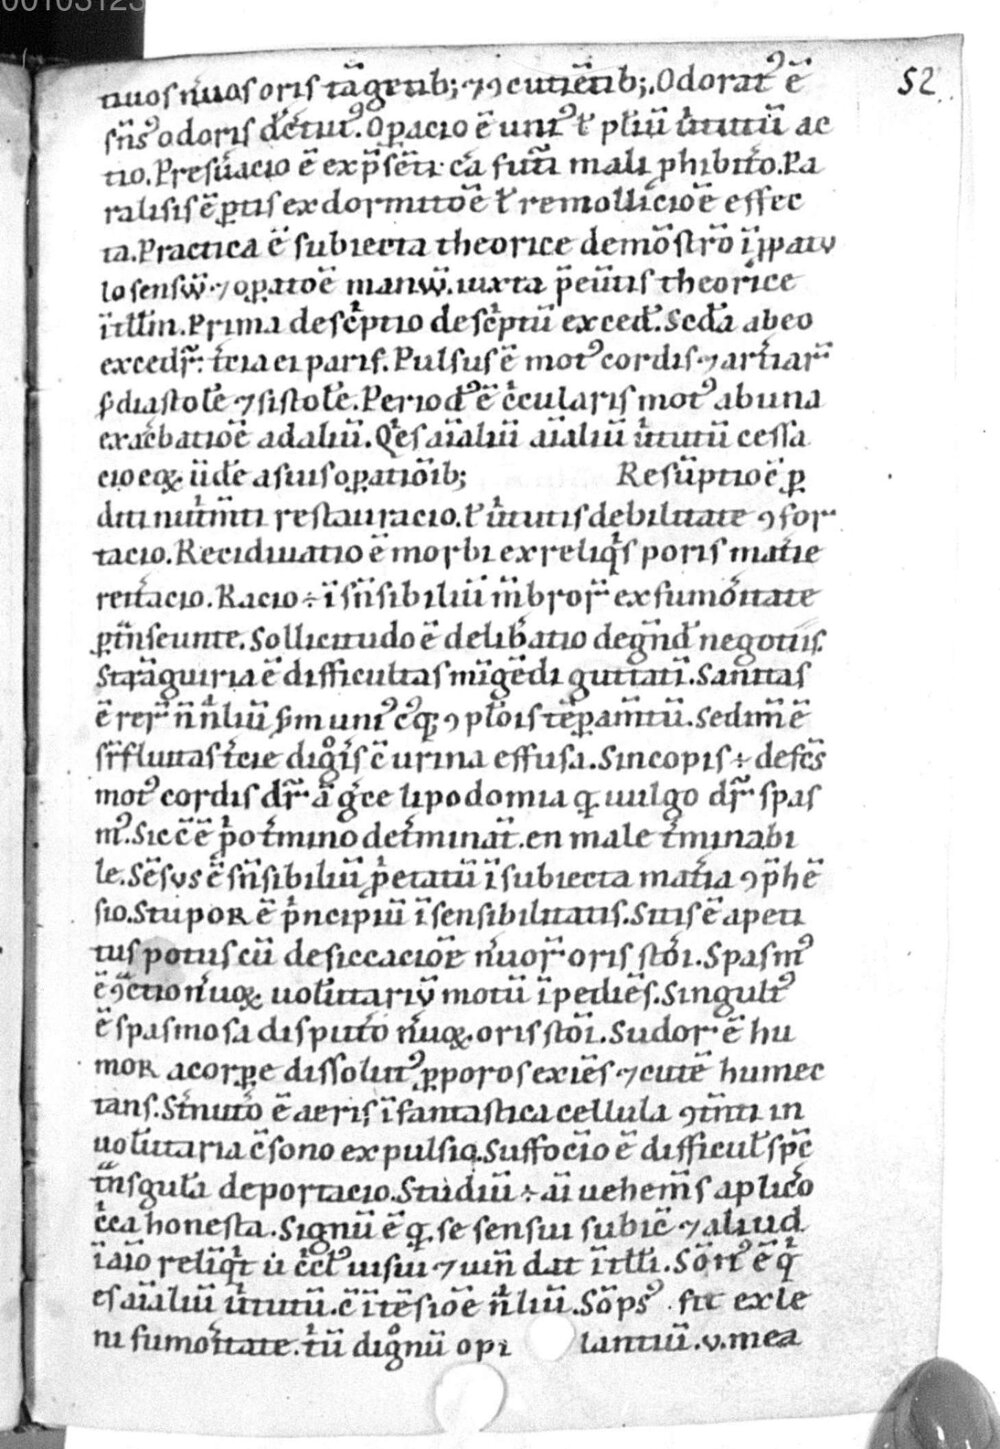 00103123
52
tiuos neruos oris tãgẽtib; ⁊ ꝯcutiẽtib;. Odorat᷒ ẽ
sñs᷒ odoris dcẽtiu᷒. Oꝑacio ẽ uni᷒ ł pliũ ũtutũ ac
tio. Presũacio ẽ ex p̃sẽti cã futĩ mali ꝓhibitõ. Pa
ralisis ẽ ꝑtis ex dormitõe ł remollicioẽ effec
ta. Practica ẽ subiecta theorice demõstrõ ĩ ꝓpatu
lo sensuũ ⁊ oꝑatoẽ manuũ. iuxta p̃eũtis theorice
ĩtłłm. Prima descͥptio descͥptũ exced᷒. Scda abeo
excedr̃. tͥcia ei paris. Pulsus ẽ mot᷒ cordis ⁊ artͥiar̃
ẜm diastolẽ ⁊ sistolẽ. Periodᷣ ẽ cͥcularis mot᷒ ab una
exacͥbatioẽ ad aliũ. Qͥes aĩaliũ aĩaliũ ũtutũ cessa
cio eoꝝ. iĩde a suis oꝑatiõib; Resũptio ẽ ꝑ
diti nutͥm̃ti restauracio. ł ũtutis debilitate ꝯfor
tacio. Recidiuatio ẽ morbi ex reliqͥs poris matͥie
reitͥacio. Racio ÷ ĩ sñsibiliũ m̃bror̃ ex fumõitate
ꝑtñseunte. Sollicitudo ẽ delibͥatio de gñdᷣ negotiis.
Strãguiria ẽ difficultas mĩgẽdi guttatĩ. Sanitas
ẽ rer̃ ñ ñliũ ẜm uni᷒ cͥꝗ; ꝯpłois tẽꝑam̃tũ. Sedim̃ ẽ
sr̃fluitas tͥcie digͦĩs c̃ urina effusa. Sincopis ÷ defc̃s
mot᷒ cordis dr̃ ã gͥce lipodomia ꝙ uulgo dr̃ spas
m᷒. Sic c̃ ẽ p̃o tͥmino detͥminat̃. en male tͥminabi
le. Sẽsus ẽ sñsibiliũ pͥetatũ ĩ subiecta matͥia ꝯp̃hẽ
sio. Stupor ẽ pͥncipiũ ĩsensibilitatis. Sitis ẽ apeti
tus potus cũ desiccacioẽ nͥuor̃ oris stõi. Spasm᷒
ẽ ꝯ̃ctio nͥuoꝝ uolũtariũ motũ ĩpediẽs. Singult᷒
ẽ spasmosa disputõ nͥuoꝝ. oris stõi. Sudor ẽ hu
mor a corꝑe dissolut᷒ ꝑ poros exiẽs ⁊ cutẽ humec
tans. Stͥnutõ ẽ aeris ĩ fantastica cellula ꝯtñti in
uolũtaria c̃ sono expulsio. Suffocĩo ẽ difficuł spc̃
tñsgulͥa deportacio. Studiũ ÷ aĩ uehem̃s aplicõ
cͥca honesta. Signũ ẽ ꝙ se sensui subic̃ ⁊ aliud
ĩ aĩo relĩqͥt ũ cͥcl᷒ uisui ⁊ uiñ dat ĩtłłi. Sõn᷒ ẽ qͥ
es aĩaliũ ũtutũ. c̃ ĩtẽsioẽ ñliũ. Sõps᷒ fit ex le
ni fumõitate. tͥũ digͦnũ opi lantiũ. u. mea